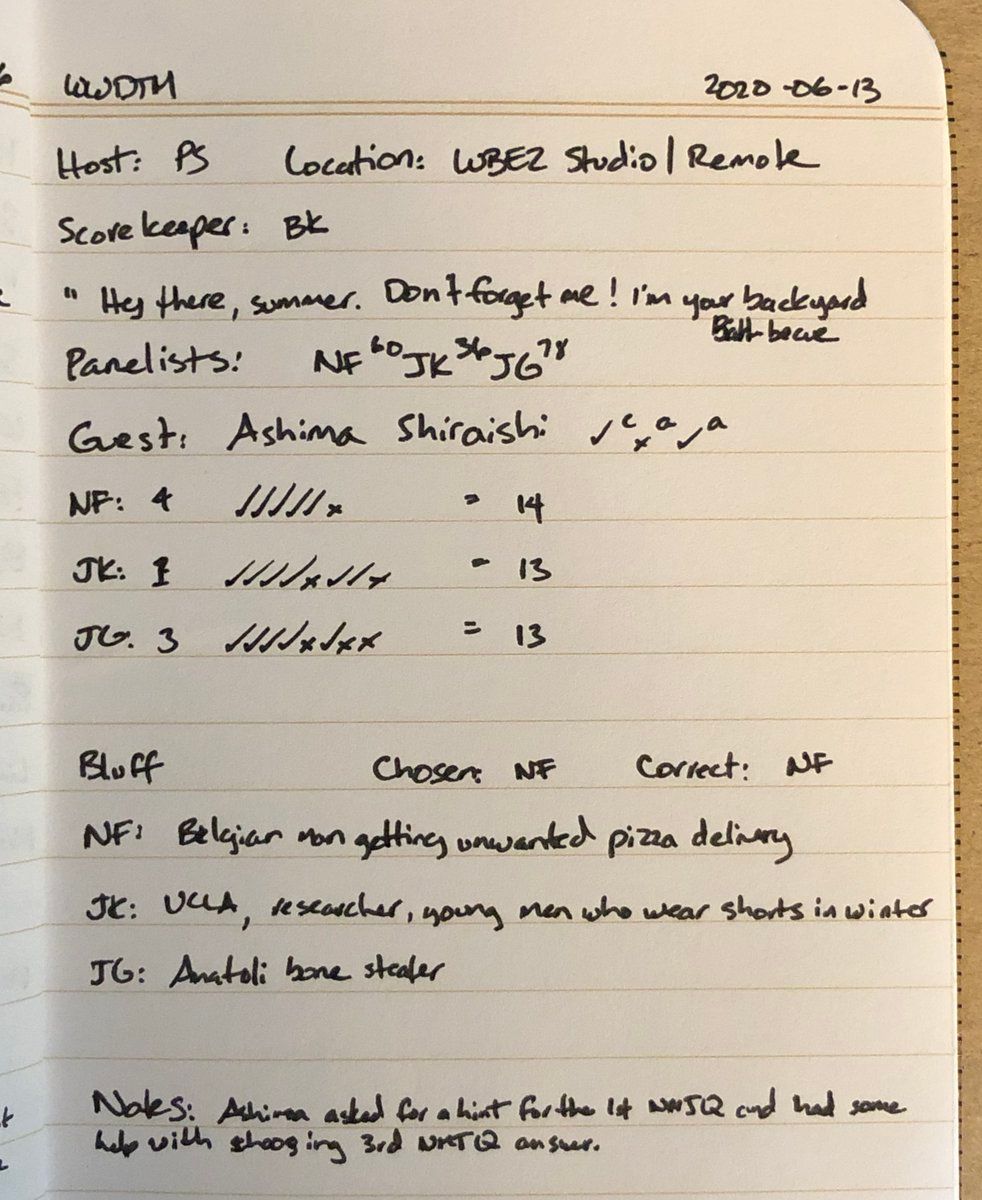 WWDTM 2020-06-13
Host: PS Location: WBEZ Studio | Remote
Scorekeeper: BK
" Hey there, summer. Don't forget me! I'm your backyard
Panelists: NF 60 JK 36 JG 78
Guest: Ashima Shiraishi ✓ c x a ✓ a
NF: 4 ✓✓✓✓✓x = 14
JK: 1 ✓✓✓✓x✓✓x = 13
JG. 3 ✓✓✓✓x✓xx = 13
Bluff Chosen: NF Correct: NF
NF: Belgian man getting unwanted pizza delivery
JK: UCLA, researcher, young men who wear shorts in winter
JG: Anatoli bone stealer
Notes: Ashima asked for a hint for the 1st and had some
help with 3rd answer.